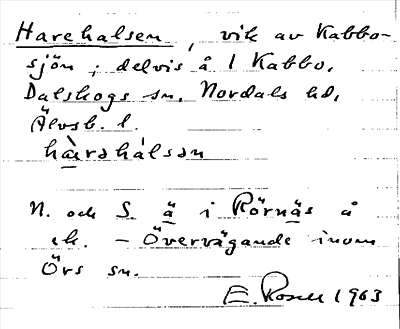 Harehalsen, vik av Kabbo-
sjön; delvis å 1 Kabbo,
Dalskogs sn, Nordals hd,
Älvsb. l.
hàrahálsan
N. och S. ä i Rörnäs å
ek. – Övervägande inom
Örs sn.
E. Rosell 1963